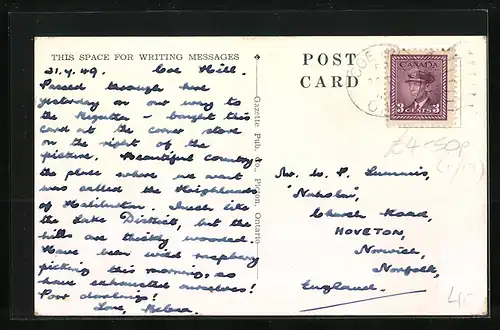 THIS SPACE FOR WRITING MESSAGES
31.7.49. Coe Hill.
Passed through here
yesterday on our way to
the Regatta - bought this
card at the corner store
on the right of the
picture. Beautiful country
the place where we went
was called the Heighlands
of Haliburton. Much like
the Lake District, but the
hills are thickly wooded.
Have been wild raspberry
picking this morning, so
have exhausted ourselves!
Poor darlings!
Love, Helena.
Gazette Pub. Co., Picton, Ontario
POST
CARD
COE
CANADA
3 CENTS 3
£4-50p
Mr. W. P. Lummis,
Church Road,
HOVETON,
Norwich,
Norfolk,
England.
4/-